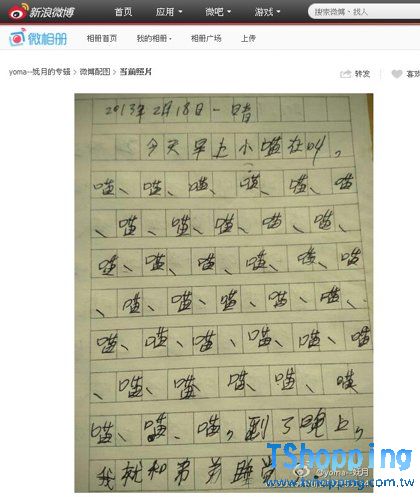 新浪微博 首页 应用 微吧 游戏 搜索微博、找人
微相册 相册首页 我的相册 相册广场 上传
yoma--妩月的专辑 > 微博配图 > 当前照片 转发
2013年2月18日 一 晴
今天早上小喵在叫。
喵、喵、喵、喵、喵、喵
、喵、喵、喵、喵、喵、喵、
喵、喵、喵、喵、喵、喵
、喵、喵、喵、喵、喵、喵、
喵、喵、喵、喵、喵、喵、喵
、喵、喵、喵、喵、喵
喵、喵、喵,到了晚上,
我就和弟弟睡觉
@yoma--妩月
TShopping
www.tshopping.com.tw